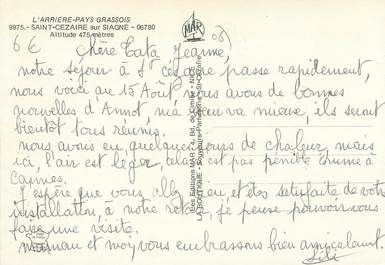 L'ARRIERE-PAYS GRASSOIS
9975. - SAINT-CEZAIRE sur SIAGNE - 06780
Altitude 475 mètres
MAR
6€
Chère Tata Jeanne,
notre séjour à St Cézaire passe rapidement,
nous voici au 15 Août, nous avons de bonnes
nouvelles d'Annot, mia va mieux, ils seront
bientôt tous réunis.
nous avons eu quelques jours de chaleur, mais
ici, l'air est léger, alors c'est pas pénible comme à
Cannes.
J'espère que vous allez bien et êtes satisfaite de votre
installation, à notre retour, je pense pouvoir vous
faire une visite.
maman et moi vous embrassons bien amicalement
Les Editions MAR - 4, Bd. de Cimiez - NICE
LA BOUTIQUE - Souvenirs-Parfumerie - St-Cézaire